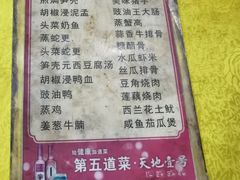 头菜奶鱼
蒸蛇更
头菜蛇更
笋壳元西豆腐汤
胡椒浸鸭血
豉油鸭
蒸鸡
姜葱牛腩
豉油王大肠
蒸蟹高
蒜蓉牛排骨
糖醋骨
水瓜虾米
丝瓜排骨
豆角烧肉
莲藕烧肉
西兰花土鱿
咸鱼茄瓜煲
给健康加道菜
第五道菜·天地壹号